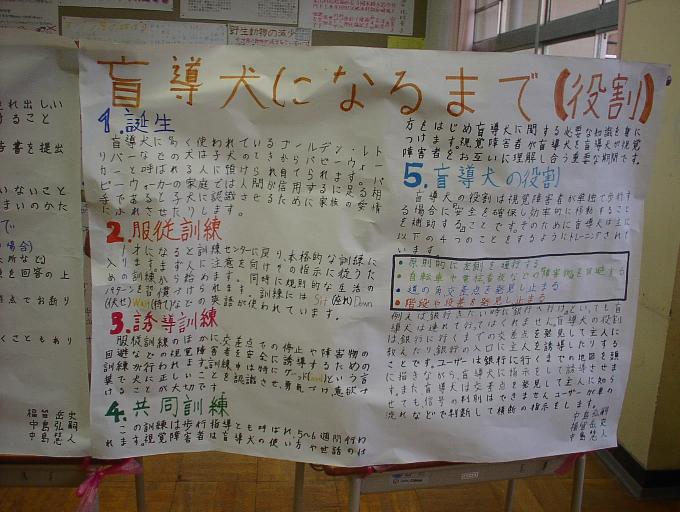 野生動物の減少
盲導犬になるまで(役割)
1.誕生
盲導犬に多く使われているゴールデン・レト
リバーなどの犬は子犬のときからパピーウォー
カーと呼ばれる人に預けられ育てられます。
ピーウォーカーの家庭では人間が信用するに足る相
手であると子犬に認識させるために家族の愛情
にふれさせたりします。
2.服従訓練
1才になると訓練センターに戻り、本格的な訓練に
入ります。まず人に注意を向けその指示に従うた
めの訓練から始めます。同時に規則的な生活の
パターンを習慣づけられます。訓練には Sit (座れ) Down
(伏せ) Wait (待て)などの英語が使われています。
3.誘導訓練
服従訓練のほかに、交差点での停止や障害物の
回避などの視覚障害者を安全に誘導するための
訓練が行われます。訓練中は特にグッド(Good)という言
葉で犬に正しいことを認識させ、勇気づけ、意欲づ
けることが大切です。
4.共同訓練
この訓練は歩行指導とも呼ばれ、5〜6週間行わ
れます。視覚障害者は盲導犬の使い方や世話のし
方をはじめ盲導犬に関する必要な知識を身に
つけます。視覚障害者が盲導犬を盲導犬が視覚
障害者をお互いに理解し合う重要な期間です。
5.盲導犬の役割
盲導犬の役割は視覚障害者が単独で歩行す
る場合に安全を確保し効率的に移動すること
を補助することです。そのために盲導犬は主に
以下の4つのことをするようにトレーニングされて
います。
・原則的に左側を通行する
・自転車や電柱看板などの障害物を回避する
・道の角交差点を発見し止まる
・階段や段差を発見し止まる
例えば銀行に行きたい時に銀行へ行け。といっても盲
導犬は連れて行ってはくれません。盲導犬の役割
は銀行に行くまでの交差点を発見して主人に
教えたり、銀行の入口に主人を誘導したりする
ことです。ユーザーは銀行に行くまでの地図を頭
に描きながら、盲導犬に指示をして誘導させま
す。また盲導犬は交差点を発見して主人に知ら
せても信号の判別はできません。ユーザーが車の
流れなどで判断して横断の指示をします。
中島弘嗣
福留岳史
中島悠人
れ出しい
すること
害を提出
いないこと
まいのかた
で
場合)
所など)
を回答の上
点でお断り
くこともあり
福留岳史
中島弘嗣
中島悠人